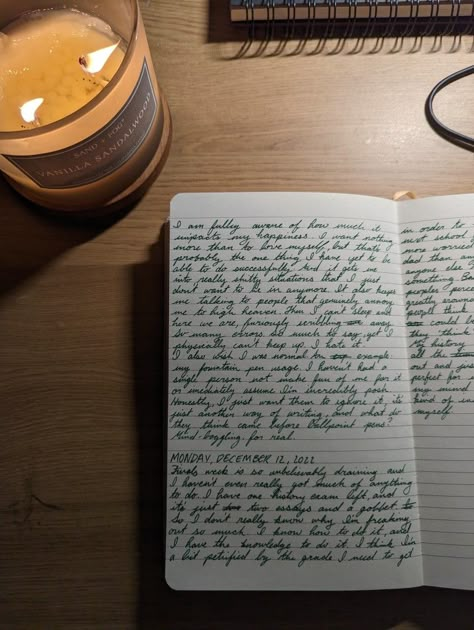 SAND + FOG
VANILLA SANDALWOOD
I am fully aware of how much it
impacts my happiness. I want nothing
more than to love myself, but that's
probably the one thing I have yet to be
able to do successfully. And it gets me
into really shitty situations that I just
don't want to be in anymore. It also keeps
me talking to people that genuinely annoy
me to high heaven. Then I can't sleep and
here we are, furiously scribbling away.
So many errors. So much to say yet I
physically can't keep up. I hate it.
I also wish I was normal for example,
my fountain pen usage. I haven't had a
single person not make fun of me for it
or immediately assume I'm incredibly posh.
Honestly, I just want them to ignore it, it's
just another way of writing, and what do
they think came before ballpoint pens?
Mind-boggling, for real.
MONDAY, DECEMBER 12, 2022
Finals week is so unbelievably draining and
I haven't even really got much of anything
to do. I have one history exam left, and
it's just two essays and a gobbet to
do. I don't really know why I'm freaking
out so much. I know how to do it, and
I have the knowledge to do it. I think I'm
a bit petrified by the grade I need to get
in order to
most school
more worried
dad than
anyone else
something.
peoples perce
greatly
people think
could be
they think
My history
all the
out and jus
perfect
way mind
kind of